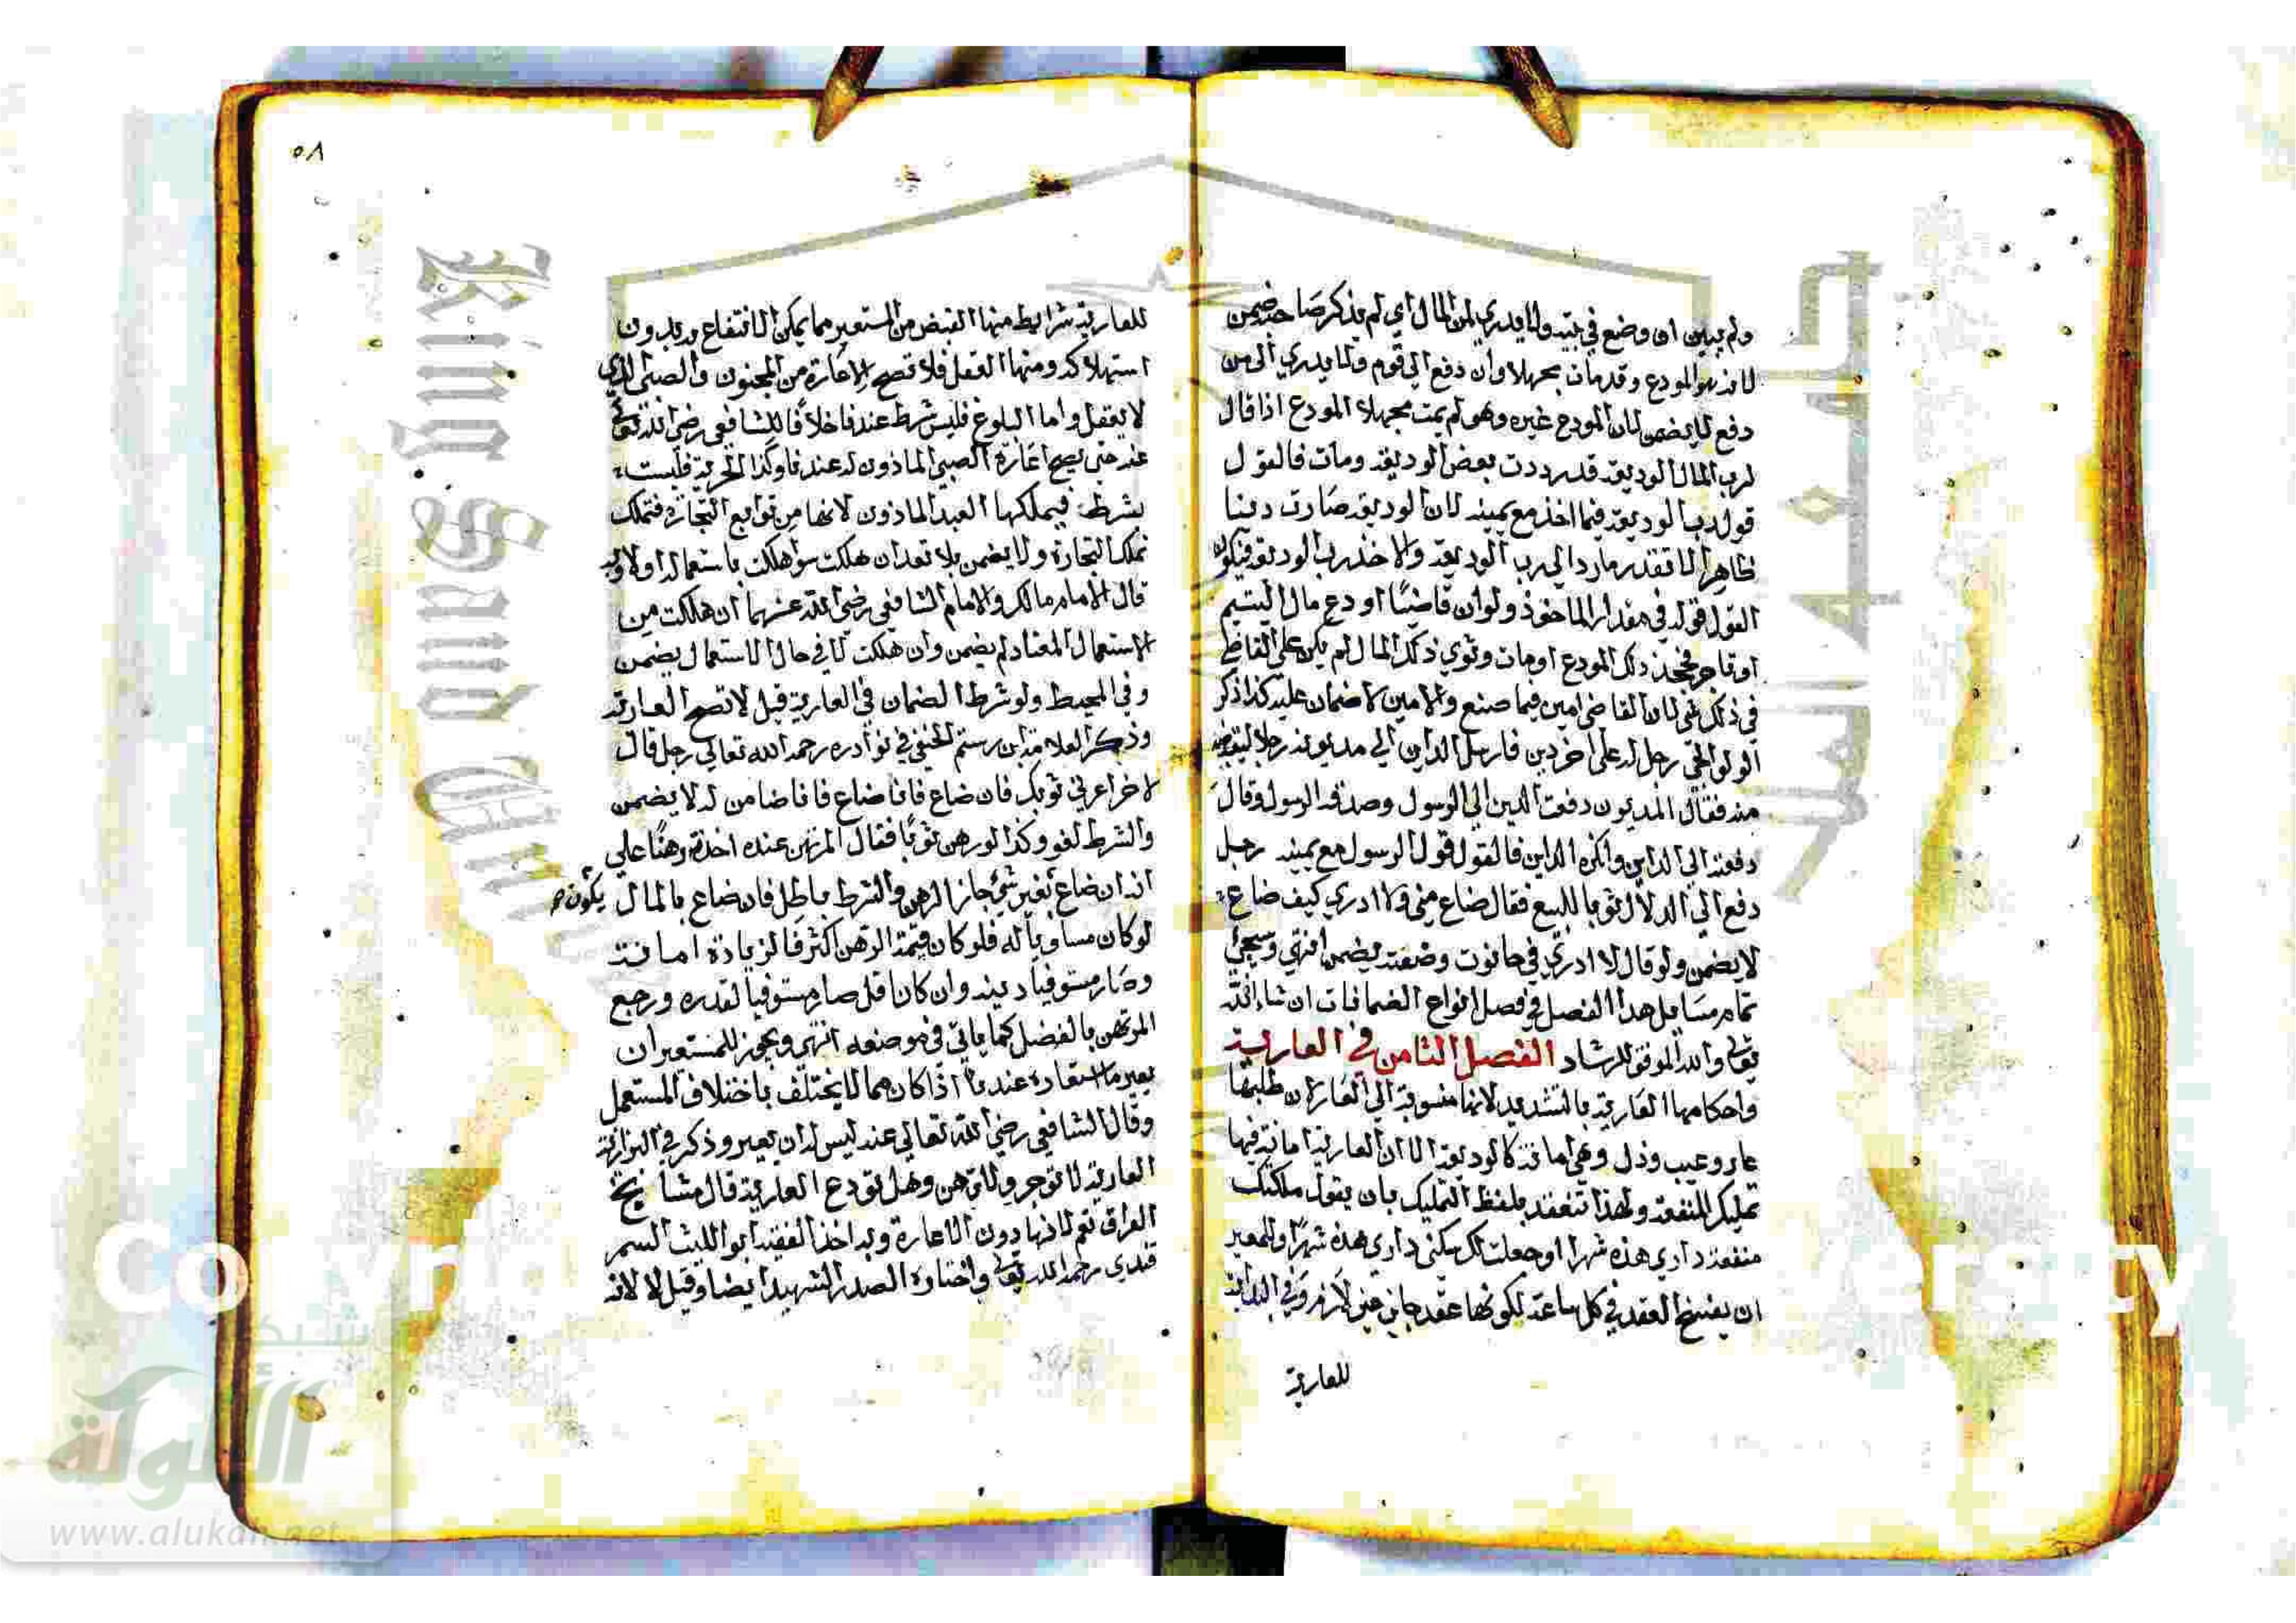 ولم يبين او وضع في بيته ولا يدري لمن المال اي لم يذكر صاحبه ضمن
لانه هو المودع وقد مات مجهلا وان دفع الي قوم ولا يدري الي من
دفع لا يضمن لان المودع غيره وهو لم يمت مجهلا المودع اذا قال
لرب المال الوديعة قد رددت بعض الوديعة ومات فالقول
قول رب الوديعة فيما اخذ مع يمينه لان الوديعة صارت دينا
ظاهرا الا قدر ما رد الي رب الوديعة والاخذ رب الوديعة فيكون
القول قوله في مقدار الماخوذ ولو ان قاضيا اودع مال اليتيم
او تاجر فجحد ذلك المودع او مات وتوي ذلك المال لم يكن علي القاضي
في ذلك شي لان القاضي امين فيما صنع والامين لا ضمان عليه كذا ذكر
الولوالجي رجل له على اخر دين فارسل الداين الي مديونه رجلا ليقبضه
منه فقال المديون دفعت الدين الي الرسول وصدقه الرسول وقال
دفعته الي الداين وانكره الداين فالقول قول الرسول مع يمينه رجل
دفع الي الدلال ثوبا للبيع فقال ضاع مني ولا ادري كيف ضاع
لا يضمن ولو قال لا ادري في حانوت وضعته يضمن انتهي وسيجئ
تمام مسايل هذا الفصل في فصل انواع الضمانات ان شاء الله
تعالى والله الموفق للرشاد الفصل الثامن في العارية
واحكامها العارية بالتشديد لانها منسوبة الي العار لان طلبها
عار وعيب وذل وهي امانة كالوديعة الا ان العارية امانة فيها
تمليك المنفعة ولهذا تنعقد بلفظ التمليك بان يقول ملكتك
منفعة داري هذه شهرا او جعلت لك سكنى داري هذه شهرا وللمعير
ان يفسخ العقد في كل ساعة لكونها عقد جايز غير لازم وفي البداية
للعارية
٥٨
للعارية شرايط منها القبض من المستعير مما يمكن الانتفاع به بدون
استهلاكه ومنها العقل فلا تصح الاعارة من المجنون والصبي الذي
لا يعقل واما البلوغ فليس شرط عندنا خلافا للشافعي رضي الله تعالى
عنه حتى يصح اعارة الصبي الماذون له عندنا وكذا الحرية فليست
بشرط فيملكها العبد الماذون لانها من توابع التجارة فتملك
تملك التجارة ولا يضمن بلا تعد ان هلكت سوا هلكت باستعماله او لا وبه
قال الامام مالك والامام الشافعي رضي الله عنهما ان هلكت من
الاستعمال المعتاد لم يضمن وان هلكت لا في حال الاستعمال يضمن
وفي المحيط ولو شرط الضمان في العارية قيل لا تصح العارية
وذكر العلامة ابن رستم الحنفي في نوادره رحمه الله تعالي رجل قال
لاخر اعرني ثوبك فان ضاع فانا ضامن له لا يضمن
والشرط لغو وكذا لو رهن ثوبا فقال المرتهن عنده اخذه رهنا علي
انه ان ضاع بغير شي جاز الرهن والشرط باطل فان ضاع بالمال يكون
لو كان مساويا له فلو كان قيمة الرهن اكثر فالزيادة امانة
وصار مستوفيا دينه وان كان اقل صار مستوفيا لقدره ورجع
المرتهن بالفضل كما ياتي في موضعه انتهي ويجوز للمستعير ان
يعير ما استعاره عندنا اذا كان مما لا يختلف باختلاف المستعمل
وقال الشافعي رضي الله تعالي عنه ليس له ان يعير وذكر في البزازية
العارية لا توجر ولا ترهن وهل تودع العارية قال مشايخ
العراق نعم لانها دون الاعارة وبه اخذ الفقيه ابو الليث السمر
قندي رحمه الله تعالى واختاره الصدر الشهيد ايضا وقيل لا لانه
King Saud
جامعة الملك
شبكة
الألوكة
www.alukah.net